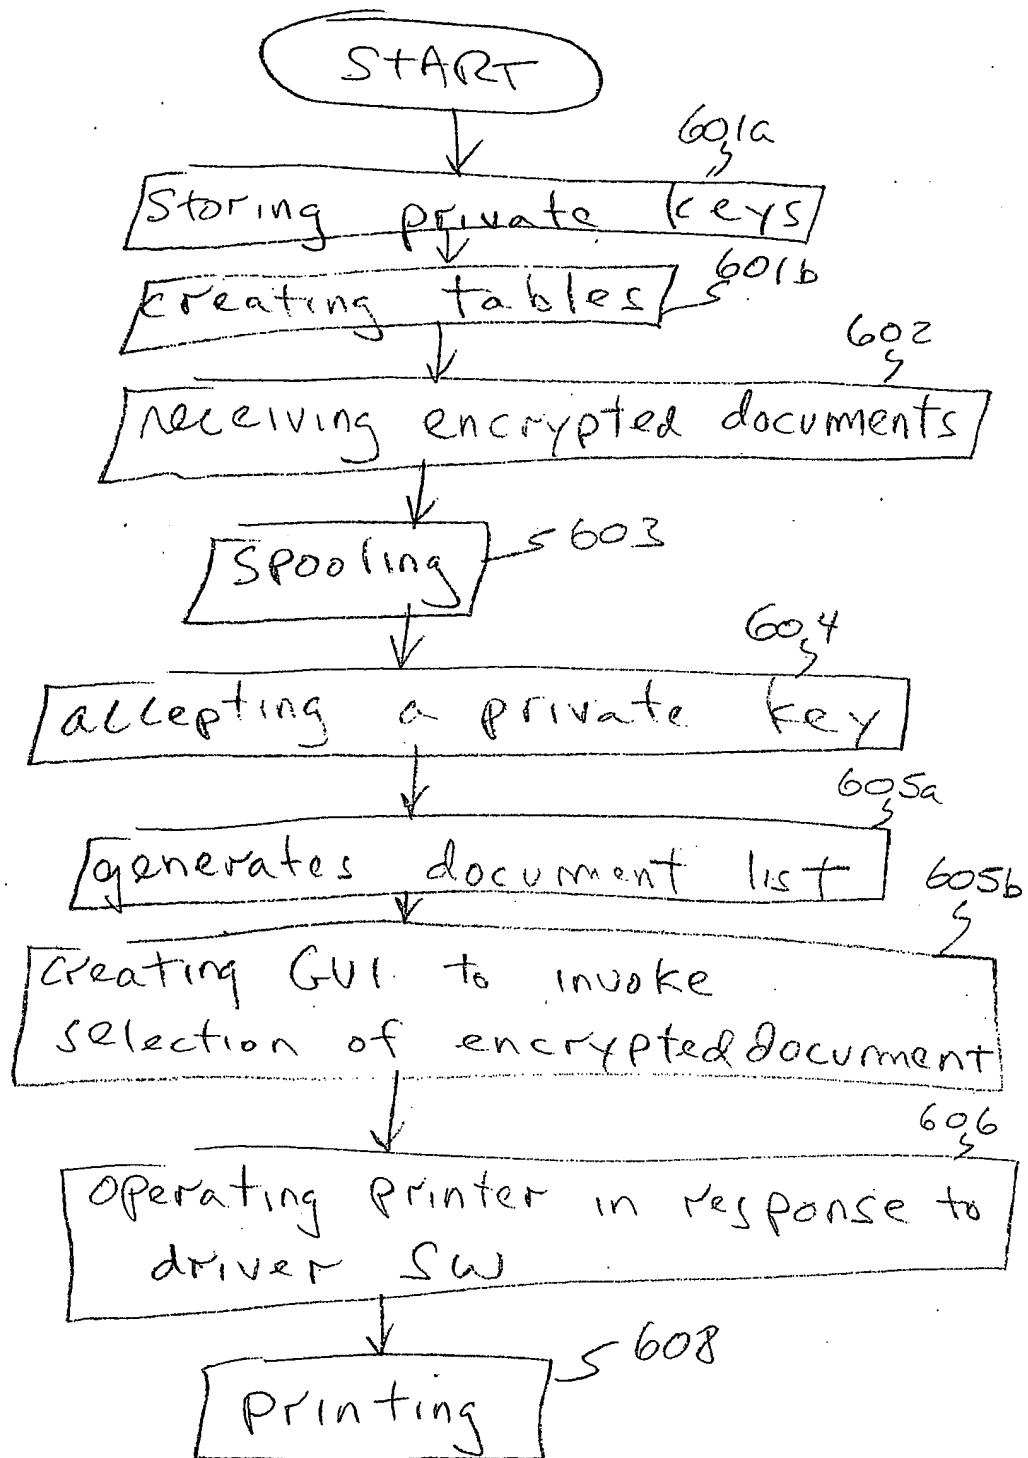 START
601a
Storing private keys
601b
creating tables
602
receiving encrypted documents
603
Spooling
604
accepting a private key
605a
generates document list
605b
Creating GUI to invoke
selection of encrypted document
606
operating printer in response to
driver SW
608
printing